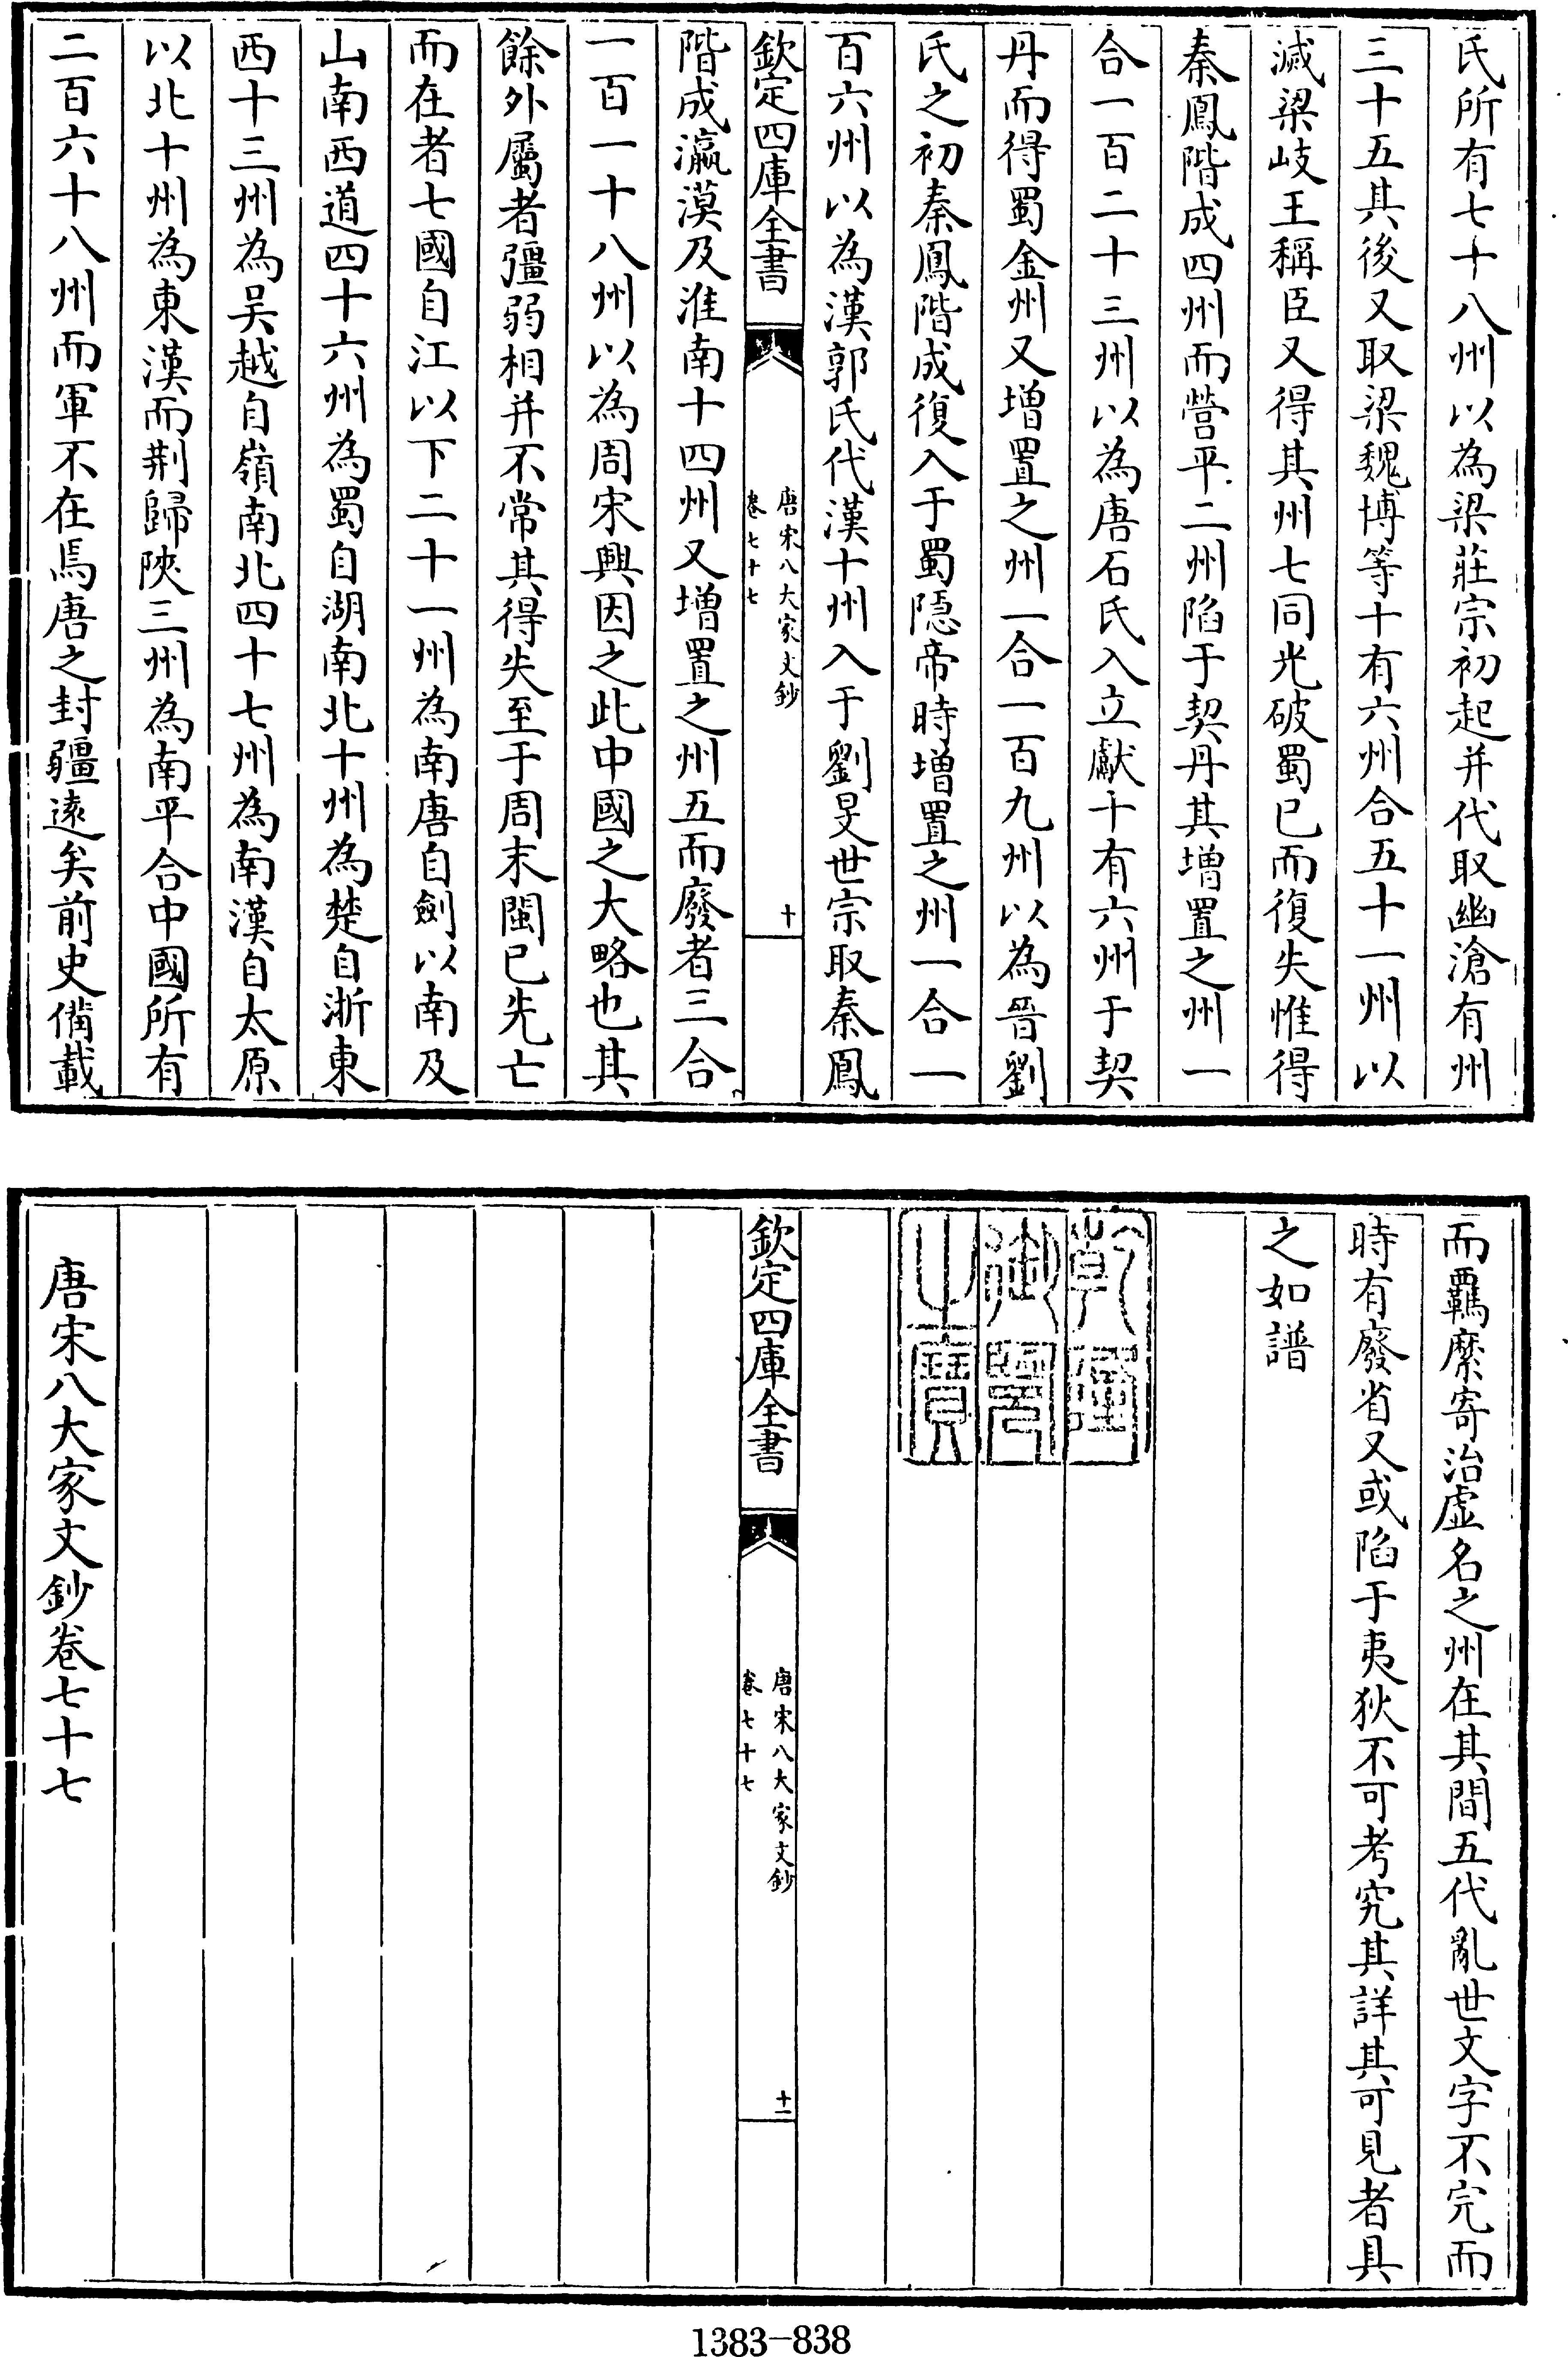 氏所有七十八州以為梁莊宗初起并代取幽滄有州
三十五其後又取梁魏博等十有六州合五十一州以
滅梁岐王稱臣又得其州七同光破蜀已而復失惟得
秦鳳階成四州而營平二州陷于契丹其增置之州一
合一百二十三州以為唐石氏入立獻十有六州于契
丹而得蜀金州又增置之州一合一百九州以為晉劉
氏之初秦鳳階成復入于蜀隱帝時增置之州一合一
百六州以為漢郭氏代漢十州入于劉旻世宗取秦鳳
欽定四庫全書
唐宋八大家文鈔
卷七十七
十
階成瀛漠及淮南十四州又增置之州五而廢者三合
一百一十八州以為周宋興因之此中國之大略也其
餘外屬者彊弱相并不常其得失至于周末閩已先亡
而在者七國自江以下二十一州為南唐自劍以南及
山南西道四十六州為蜀自湖南北十州為楚自浙東
西十三州為吳越自嶺南北四十七州為南漢自太原
以北十州為東漢而荆歸陜三州為南平合中國所有
二百六十八州而軍不在焉唐之封疆遠矣前史備載
而羈縻寄治虛名之州在其間五代亂世文字不完而
時有廢省又或陷于夷狄不可考究其詳其可見者具
之如譜
乾隆
御覽
之寶
欽定四庫全書
唐宋八大家文鈔
卷七十七
十一
唐宋八大家文鈔卷七十七
1383-838